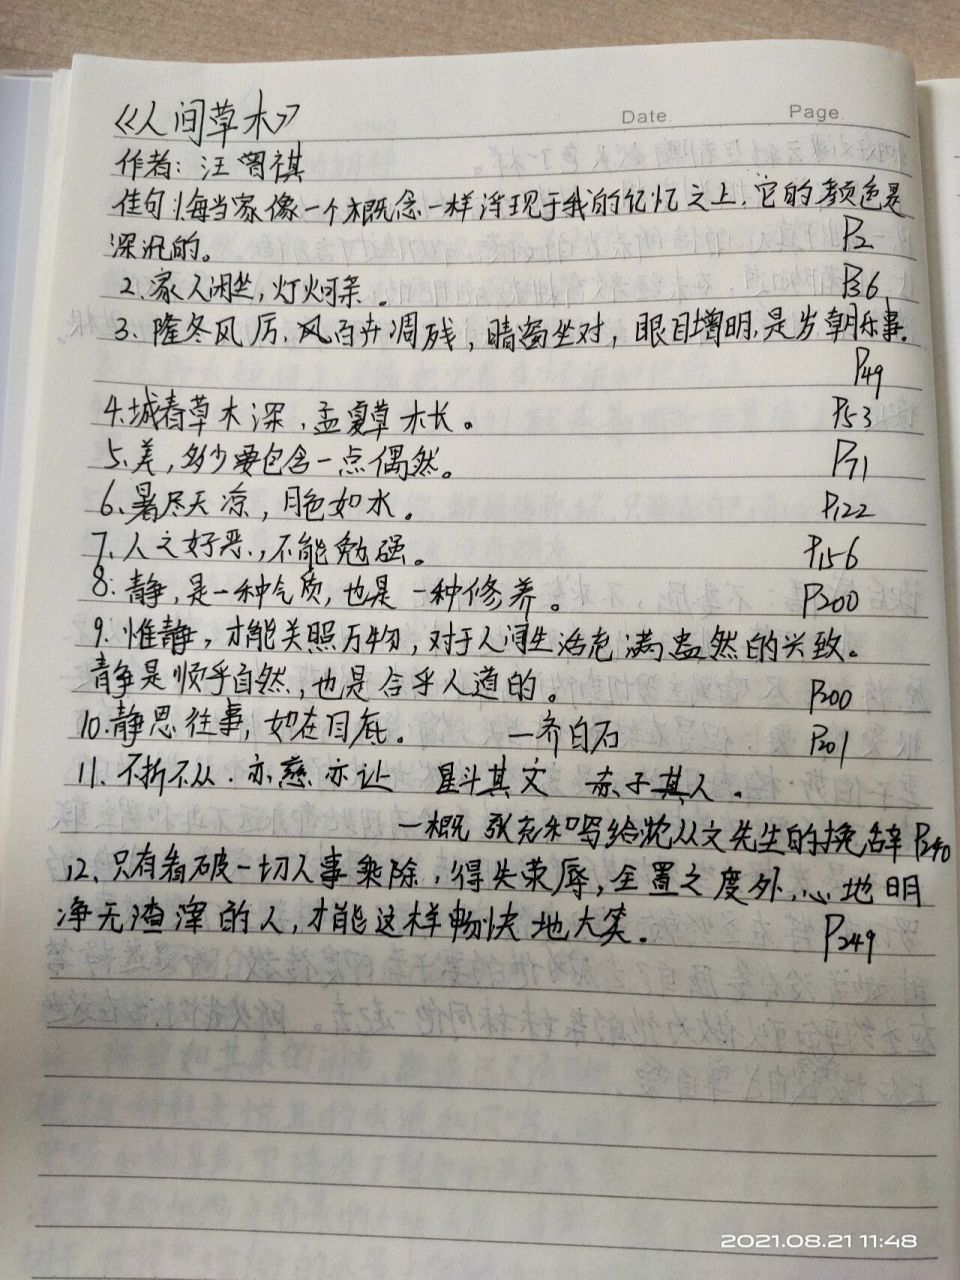 Date Page
《人间草木》
作者：汪曾祺
佳句 1、每当家像一个概念一样浮现于我的记忆之上，它的颜色是
深沉的。 P2
2、家人闲坐，灯火可亲。 P36
3、隆冬风厉，风百卉凋残，晴窗坐对，眼目增明，是岁朝乐事。
P49
4、城春草木深，孟夏草木长。 P53
5、美，多少要包含一点偶然。 P71
6、暑尽天凉，月色如水。 P122
7、人之好恶，不能勉强。 P156
8、静，是一种气质，也是一种修养。 P200
9、惟静，才能关照万物，对于人间生活充满盎然的兴致。
静是顺乎自然，也是合乎人道的。 P200
10、静思往事，如在目底。 —齐白石 P201
11、不折不从，亦慈亦让 星斗其文 赤子其人。
—概 张充和写给沈从文先生的挽辞 P240
12、只有看破一切人事乘除，得失荣辱，全置之度外，心地明
净无渣滓的人，才能这样畅快地大笑。 P249
2021.08.21 11:48